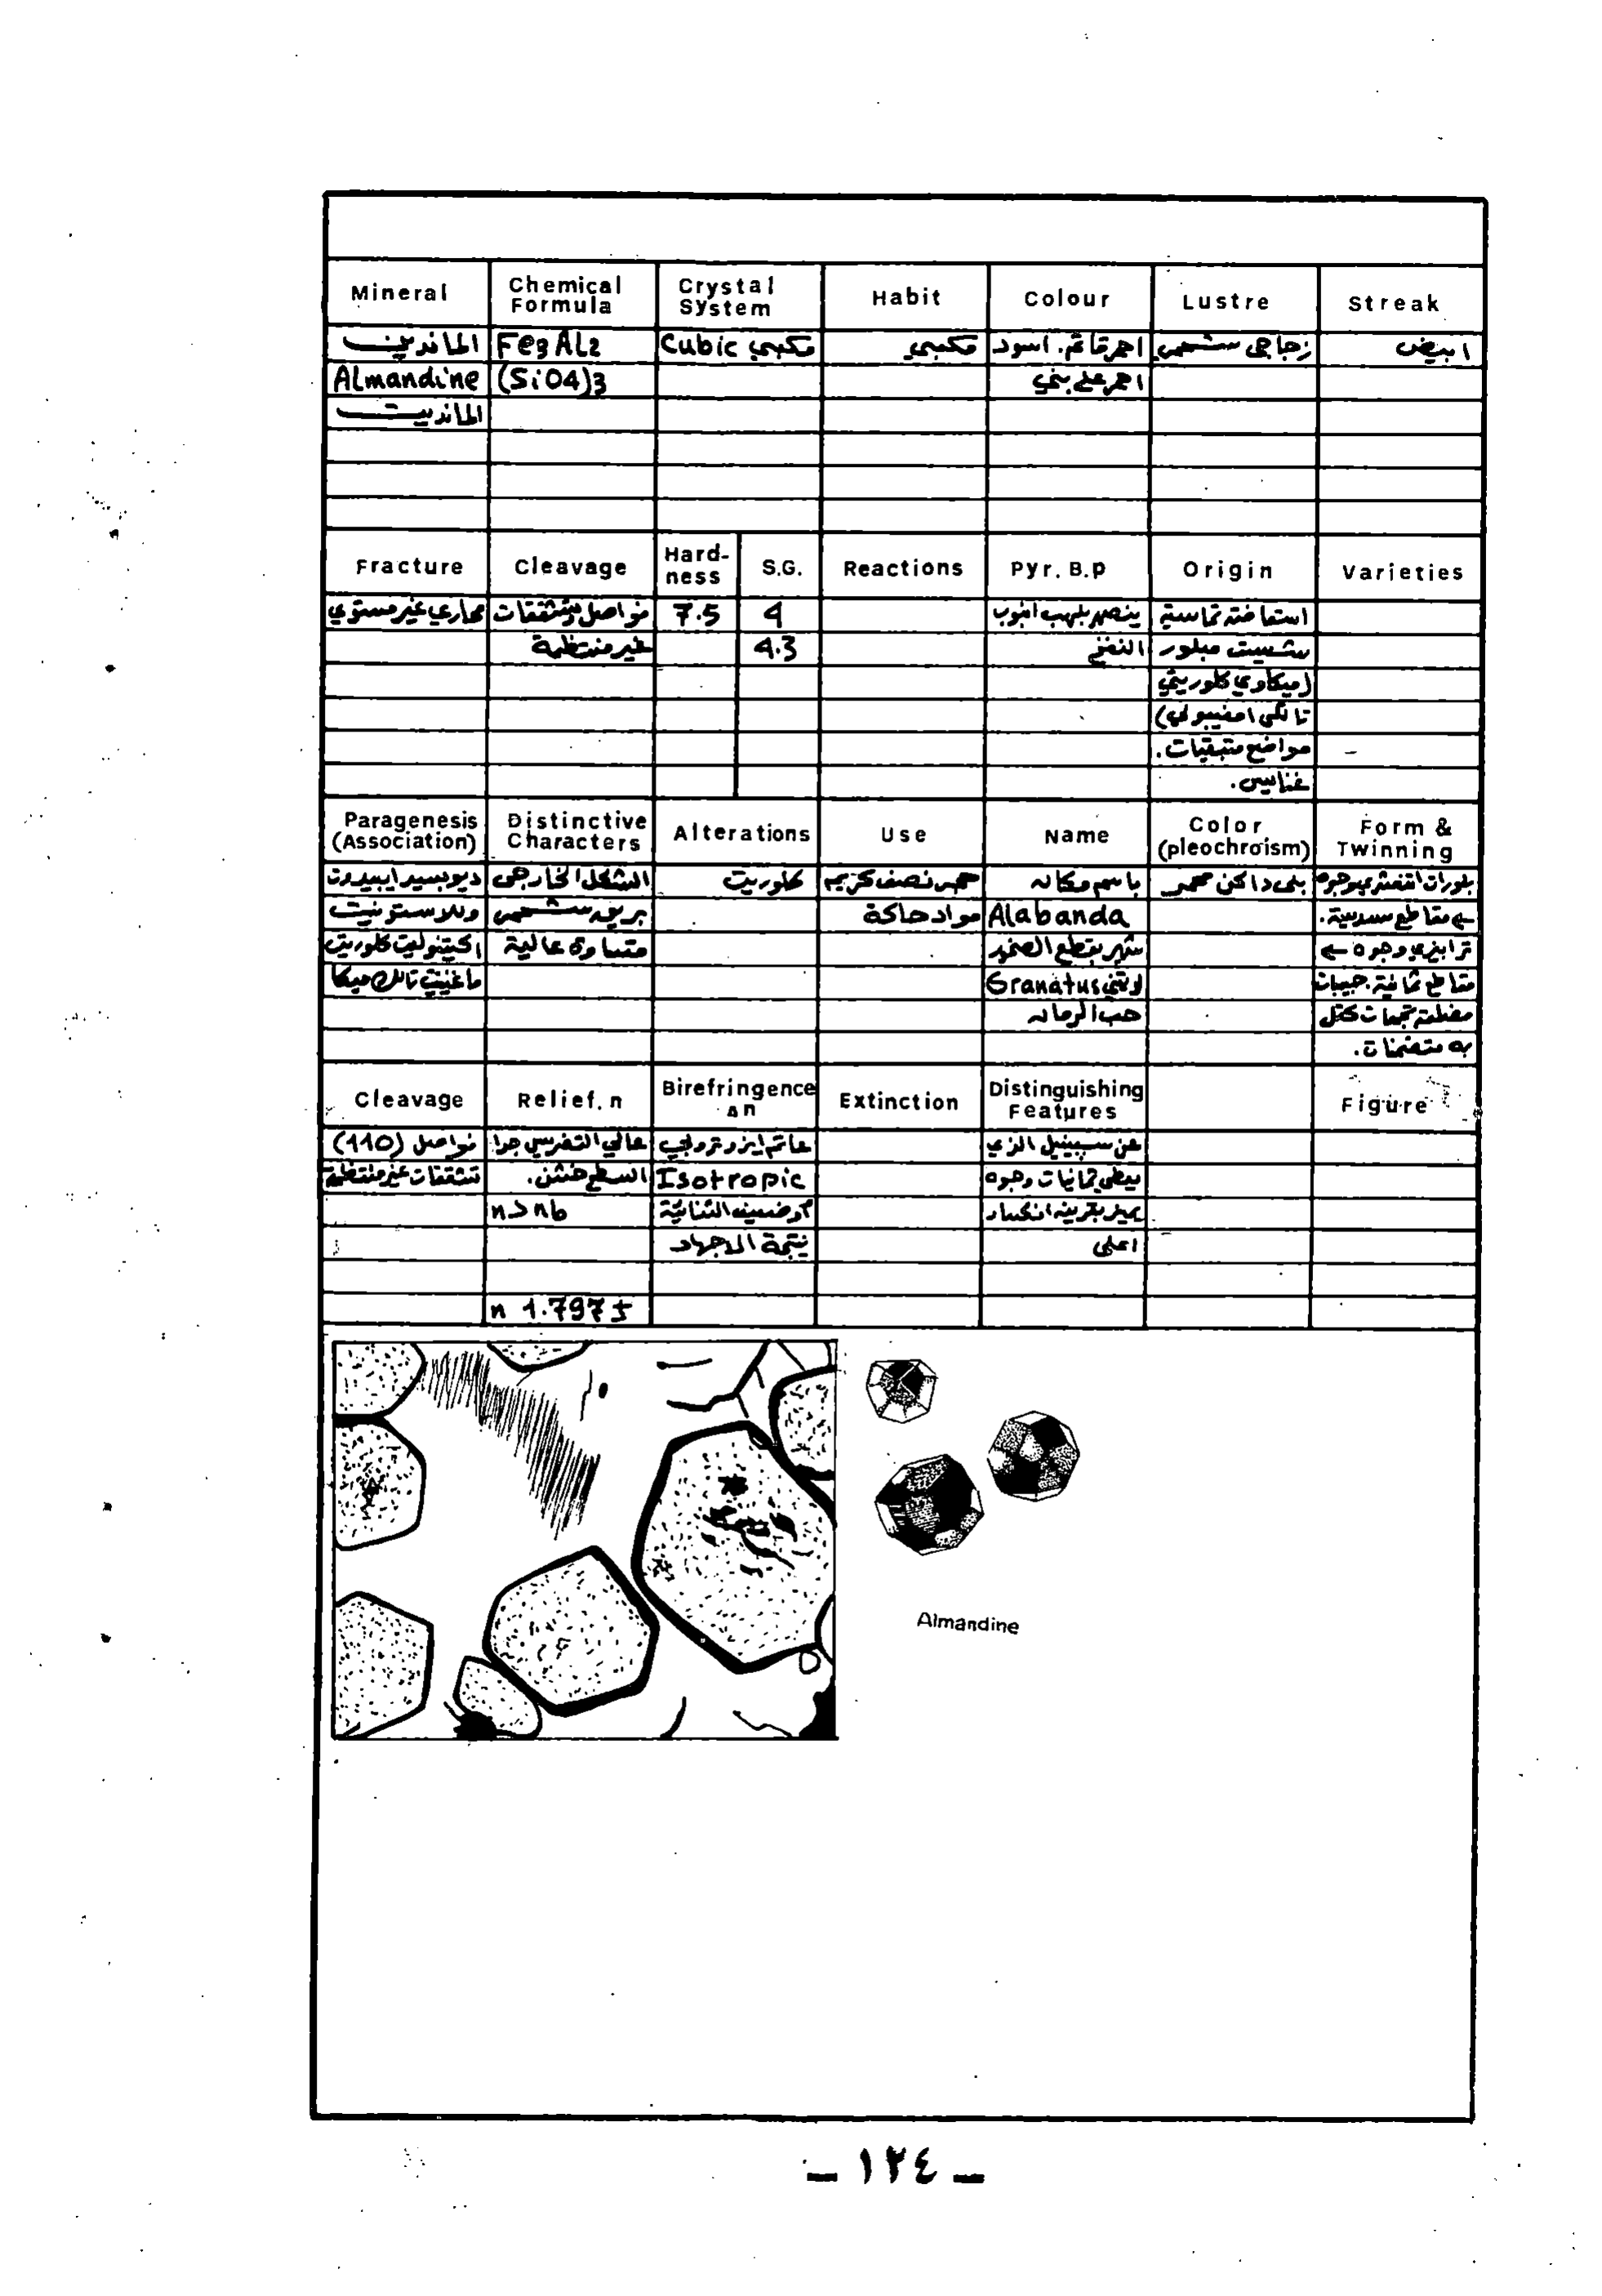 Mineral
Chemical Formula
Crystal System
Habit
Colour
Lustre
Streak
الماندين
Fe3Al2
مكعبي Cubic
مكعبي
احمر قاتم. اسود
زجاجي شحمي
ابيض
Almandine
(SiO4)3
احمر على بني
الماندیت
Fracture
Cleavage
Hard-ness
S.G.
Reactions
Pyr. B.p
Origin
Varieties
محاري غير مستوي
فواصل وتشققات
7.5
4
ينصهر بلهب انبوب
استحالة تماسية
غير منتظمة
4.3
النفخ
شيست مبلور
(ميكاوي كلوريتي
تالكي امفيبولي)
مواضع متبقيات.
غنايس.
Paragenesis (Association)
Distinctive Characters
Alterations
Use
Name
Color (pleochroism)
Form & Twinning
ديوبسيد ايبيدوت
الشكل الخارجي
كلوريت
حجر نصف كريم
باسم مكان
بني داكن محمر
وللاستونيت
بريق شحمي
مواد حاكة
Alabanda
مقاطع سدسية.
اكتينوليت كلوريت
قساوة عالية
شهر بقطع الصخور
ماغنيتيت تالك ميكا
لاتني Granatus
مقاطع ثمانية. حبيبات
حب الرمان
به متضمنات.
Cleavage
Relief. n
Birefringence Δn
Extinction
Distinguishing Features
Figure
فواصل (110)
عالي التضريس جدا
عاتم ايزوتروبي
عن سبينيل الذي
تشققات غير منتظمة
السطح خشن.
Isotropic
يعطي ثمانيات وجوه
n > nb
او ضعيف الثنائية
يميز بقرينة انكسار
نتيجة الاجهاد
اعلى
n 1.797 ±
Almandine
- ١٢٤ -